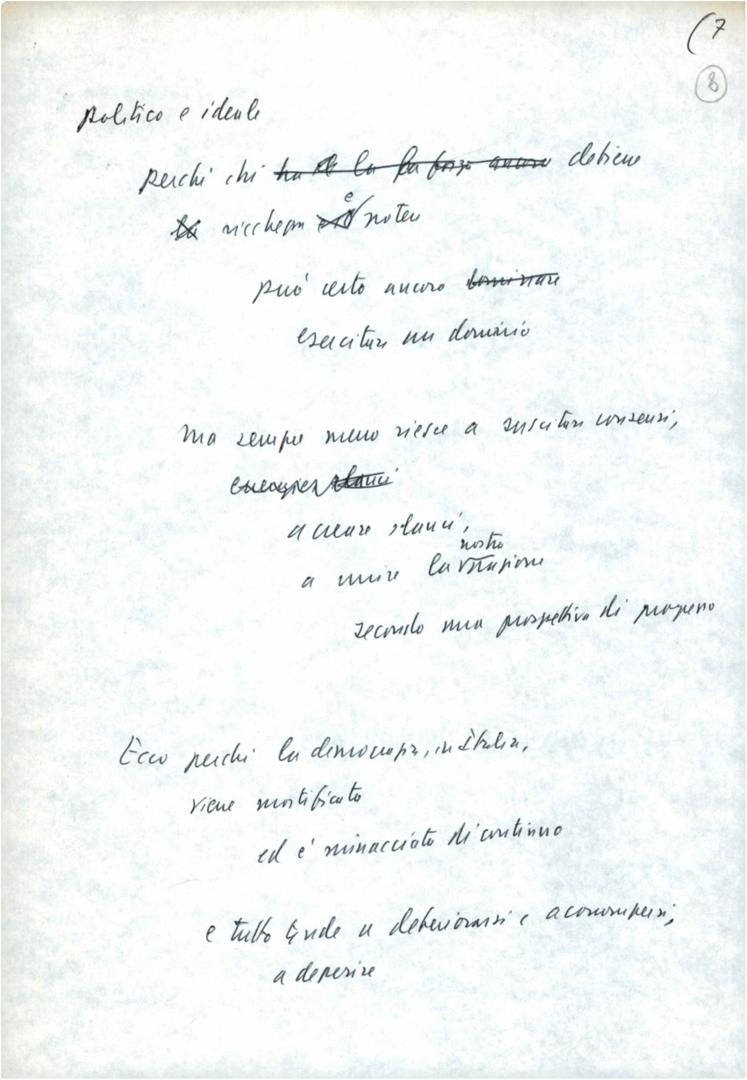 (7
8
politico e ideale
perché chi ha la forza ancora detiene
la ricchezza e potere
può certo ancora dominare
esercitare un dominio
ma sempre meno riesce a suscitare consensi,
slanci
a creare slanci,
nostra
a unire la nazione
secondo una prospettiva di progresso
Ecco perché la democrazia, in Italia,
viene mortificata
ed è minacciata di continuo
e tutto tende a deteriorarsi e a corrompersi,
a deperire